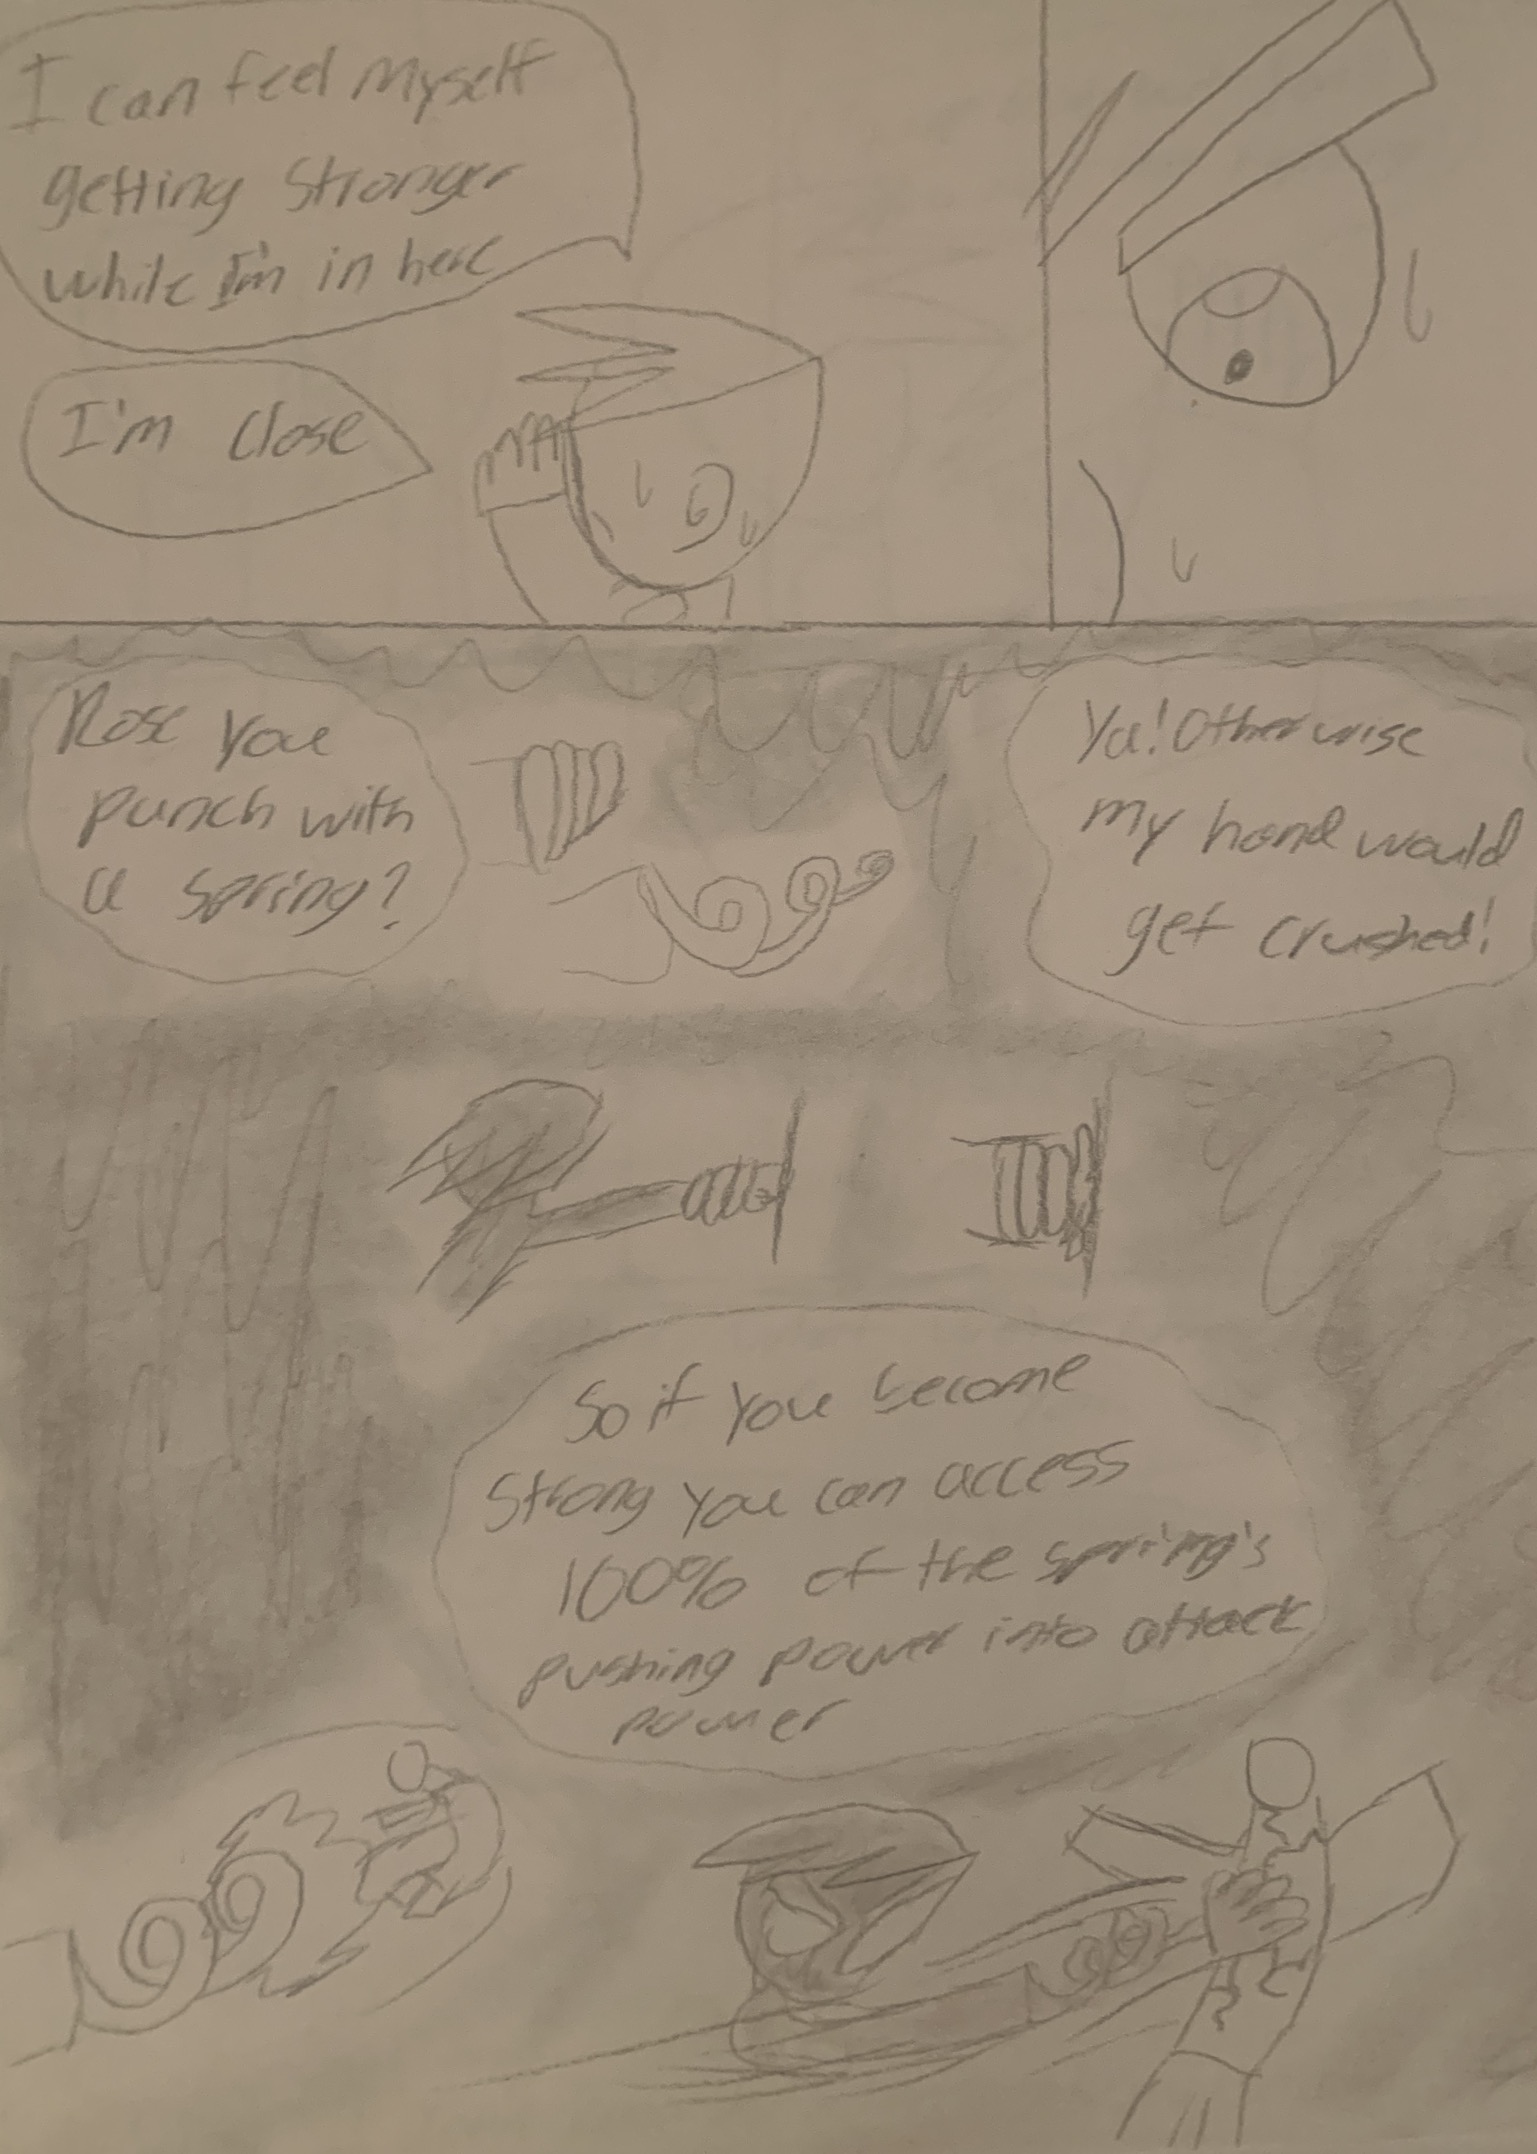 I can feel myself
getting stronger
while I'm in here
I'm close
Rose you
punch with
a spring?
Ya! Otherwise
my hand would
get crushed!
So if you become
strong you can access
100% of the spring's
pushing power into attack
power